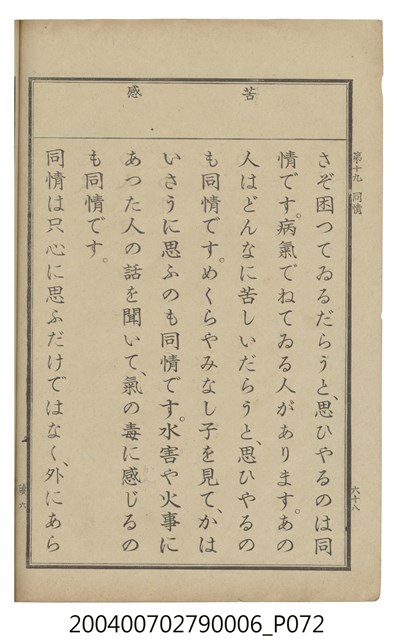 苦
感
第十九 同情
六十八
さぞ困つてゐるだらうと、思ひやるのは同
情です。病氣でねてゐる人があります。あの
人はどんなに苦しいだらうと、思ひやるの
も同情です。めくらやみなし子を見て、かは
いさうに思ふのも同情です。水害や火事に
あつた人の話を聞いて、氣の毒に感じるの
も同情です。
同情は只心に思ふだけではなく、外にあら
200400702790006_P072